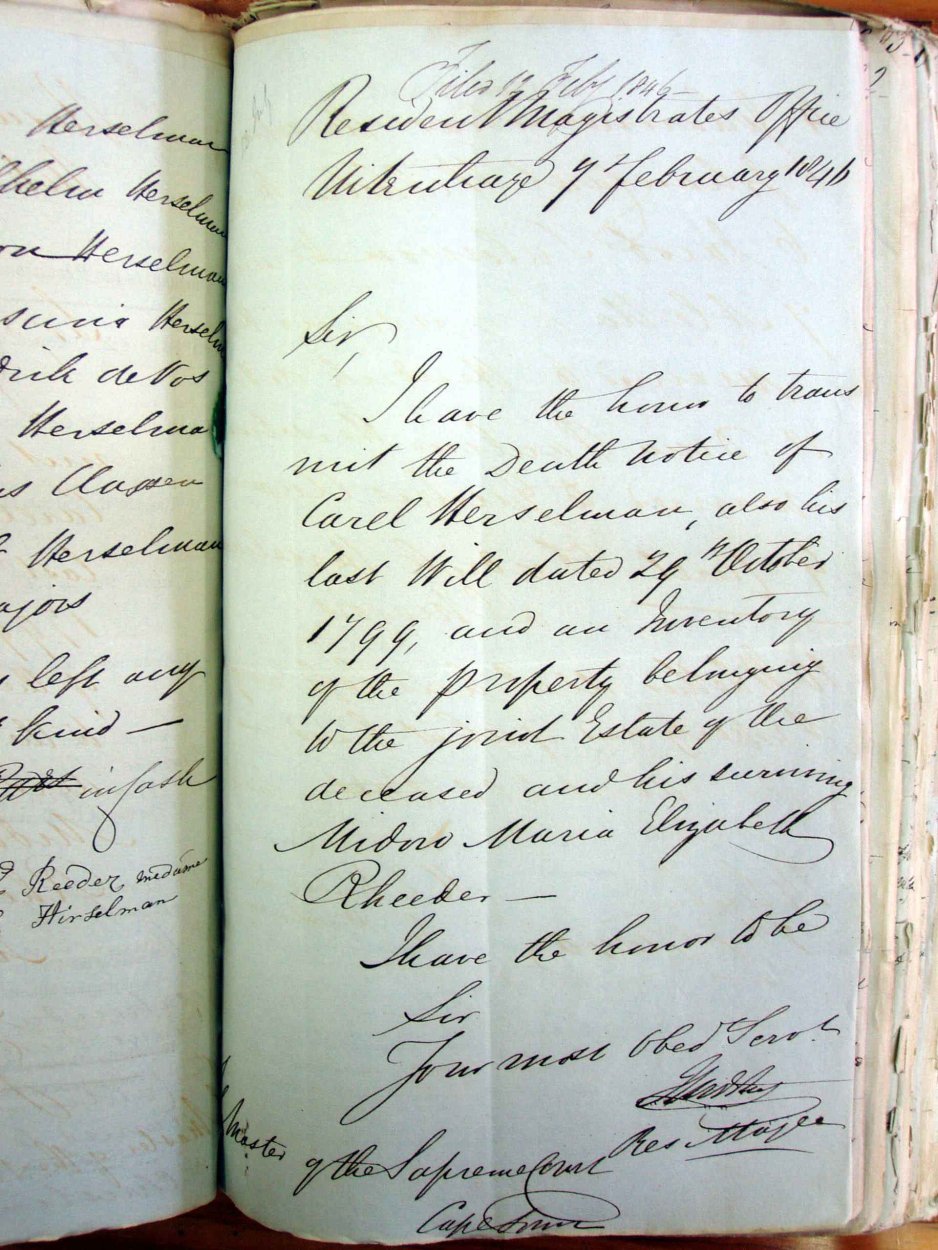 Herselman
lhelm Herselman
on Herselman
suna Herselm
drik de Vos
Herselma
s Claasen
Herselman
ajors
left any
kind —
in Cash
Reeder medame
Hirselman
Filed 12 Feby 1846 —
Resident Magistrates Office
Uitenhage 7th February 1846
Sir,
I have the honor to trans
mit the Death Notice of
Carel Herselman, also his
last Will dated 29th October
1799, and an Inventory
of the property belonging
to the joint Estate of the
deceased and his surviving
Widow Maria Elizabeth
Rheeder —
I have the honor to be
Sir
Your most Obed Servt
Res Magte
Master
of the Supreme Court
Cape Town